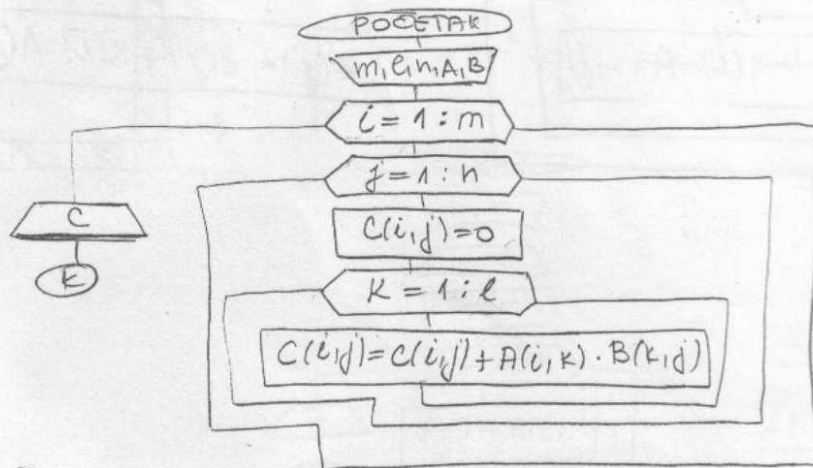 POČETAK
m, l, n, A, B
i = 1 : m
j = 1 : n
C(i,j) = 0
K = 1 : l
C(i,j) = C(i,j) + A(i,k) · B(k,j)
C
K